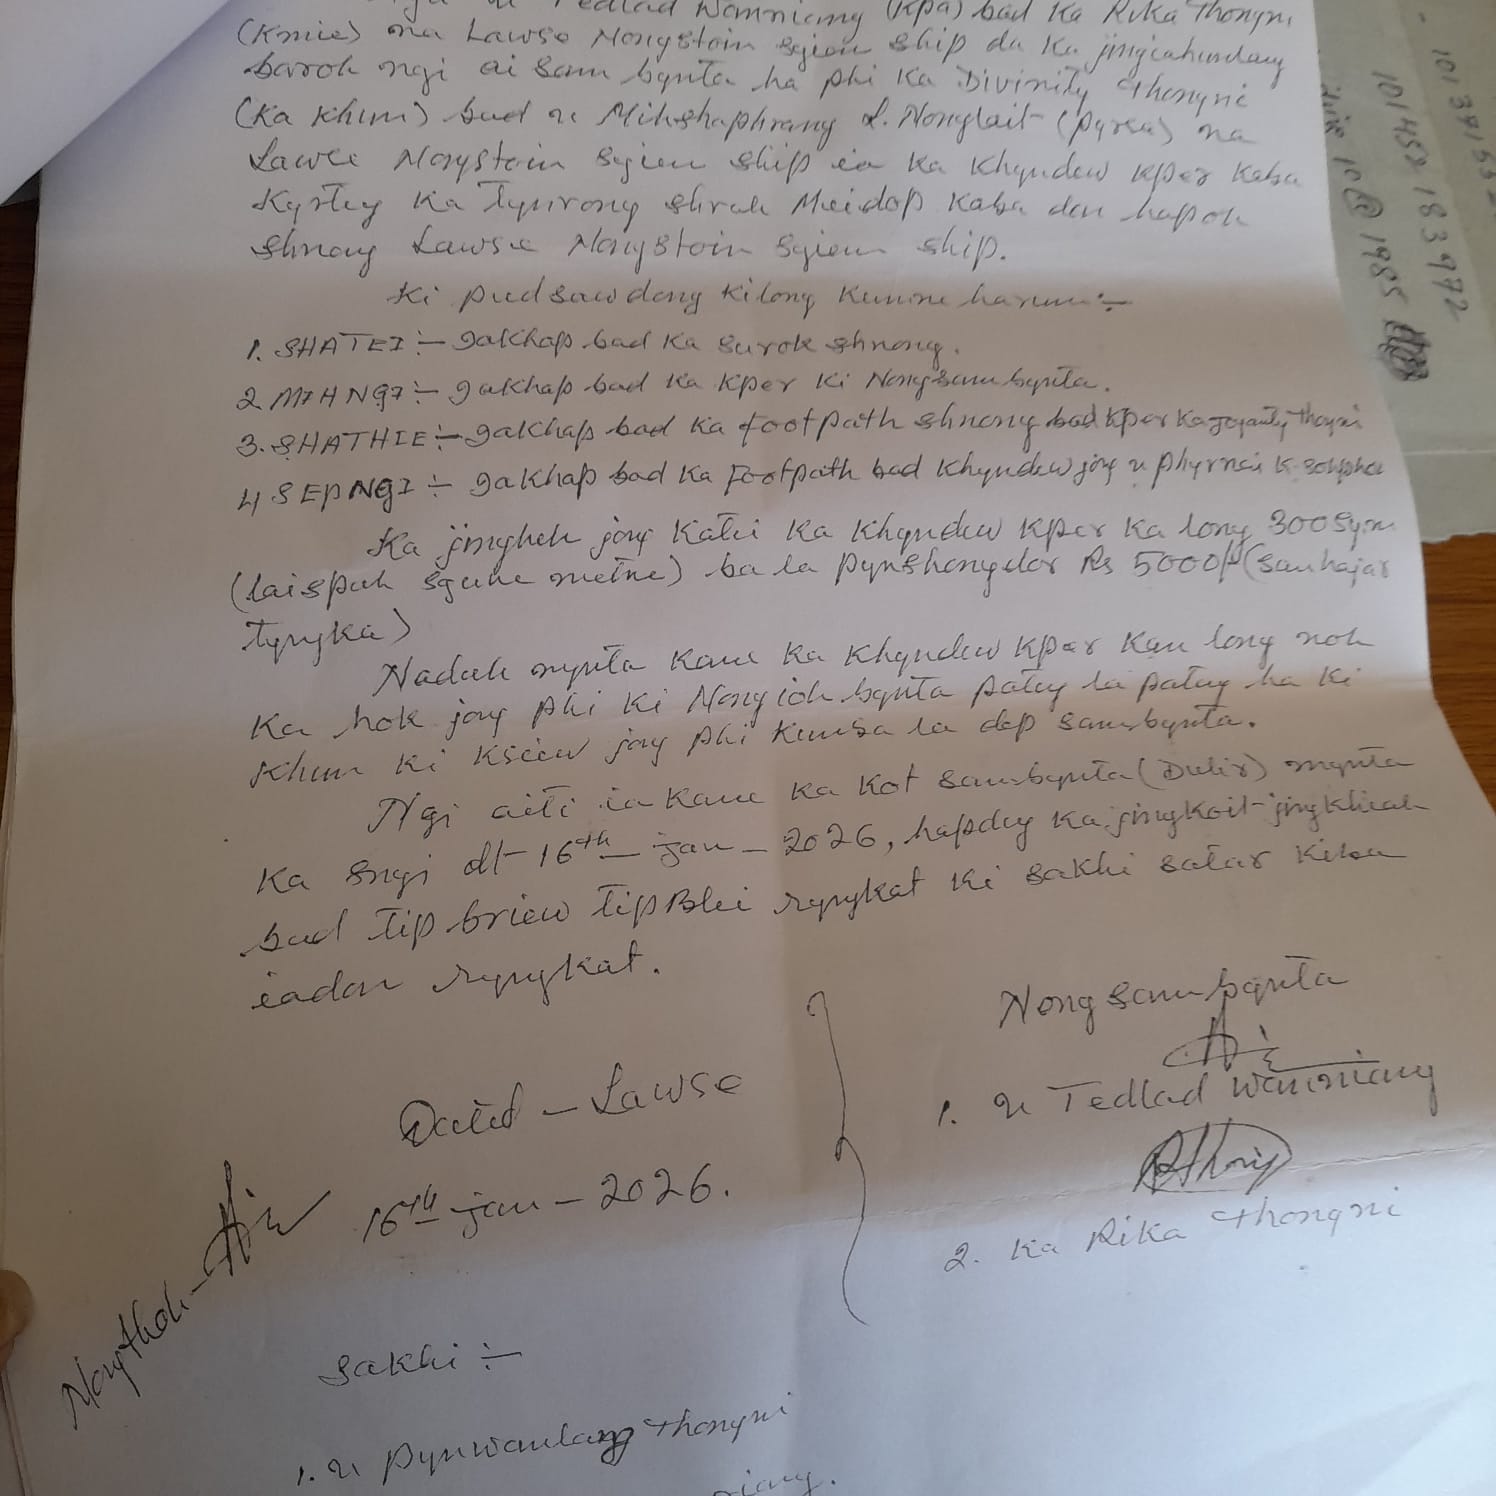 u Tedlad Wanniang (Kpa) bad Ka Rika Thongni
(Kmie) na Lawse Nongstoin Syiem ship da ka jingiahunlang
baroh ngi ai sam bynta ha phi Ka Divinity Thongni
(Ka Khun) bad u Mihshaphrang L. Nonglait (pyrsa) na
Lawse Nongstoin Syiem ship ia Ka Khyndew Kper Kaba
Kyrteng Ka Tynrong shrah Meidop Kaba don hapoh
shnong Lawse Nongstoin Syiem ship.
Ki pud sawdong Kilong Kumne harum:-
1. SHATEI:- Iakhap bad Ka Surok shnong.
2 MIHNGI:- Iakhap bad Ka Kper Ki Nongsambynta.
3. SHATHIE:- Iakhap bad Ka footpath shnong bad Kper Ka Joyanty Thongni
4 SEPNGI:- Iakhap bad Ka Footpath bad Khyndew jong u Phyrnai K
Ka jingheh jong Katei Ka Khyndew Kper Ka long 300 Sqm
(laispah square metre) ba la pynshongdor Rs 5000/- (San hajar
tyngka)
Naduh mynta Kane Ka Khyndew Kper Kan long noh
Ka hok jong phi Ki Nongioh bynta pateng la pateng ha Ki
Khun Ki Ksiew jong phi Kumba la dep sam bynta.
Ngi aiti ia Kane Ka Kot sambynta (Dulir) mynta
Ka Sngi dt 16th - jan - 2026, hapdeng Ka jingkoit-jingkhiah
bad tip briew tip Blei ryngkat Ki sakhi satar Kiba
iadon ryngkat.
Nongsambynta
1. u Tedlad Wanniang
2. Ka Rika Thongni
Dated - Lawse
16th jan - 2026.
Nongthoh -
Sakhi:-
1. u Pynwanlang Thongni
niang.
101458183972
10 @ 1985